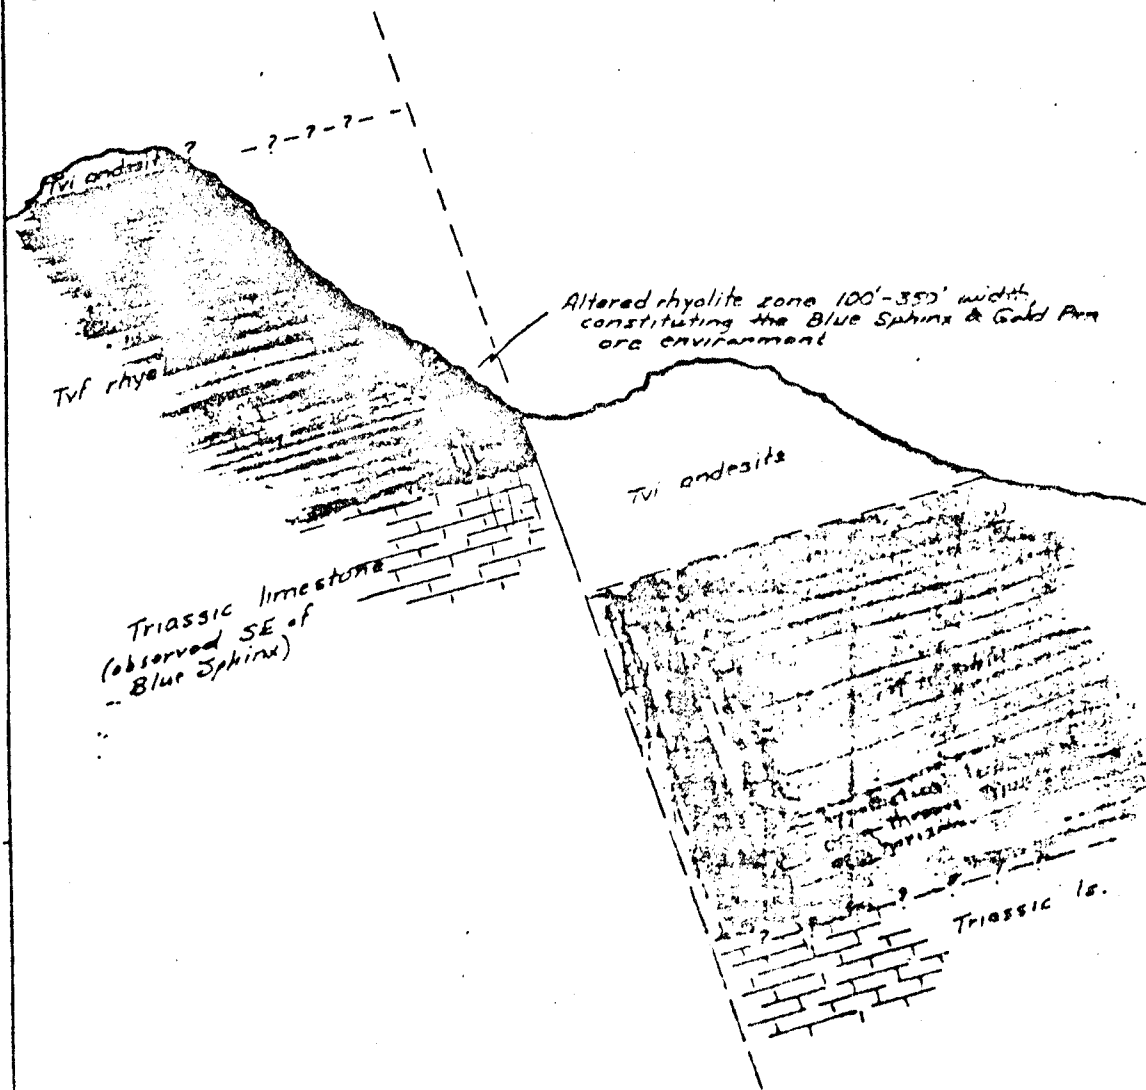 Tvi andesit ?
- ? - ? - ? -
Altered rhyolite zone 100'-350' width,
constituting the Blue Sphinx & Gold Pen
ore environment
Tvf rhyo
Tvi andesite
Triassic limestone
(observed SE of
Blue Sphinx)
thrown
horizon
? ? ?
Triassic ls.